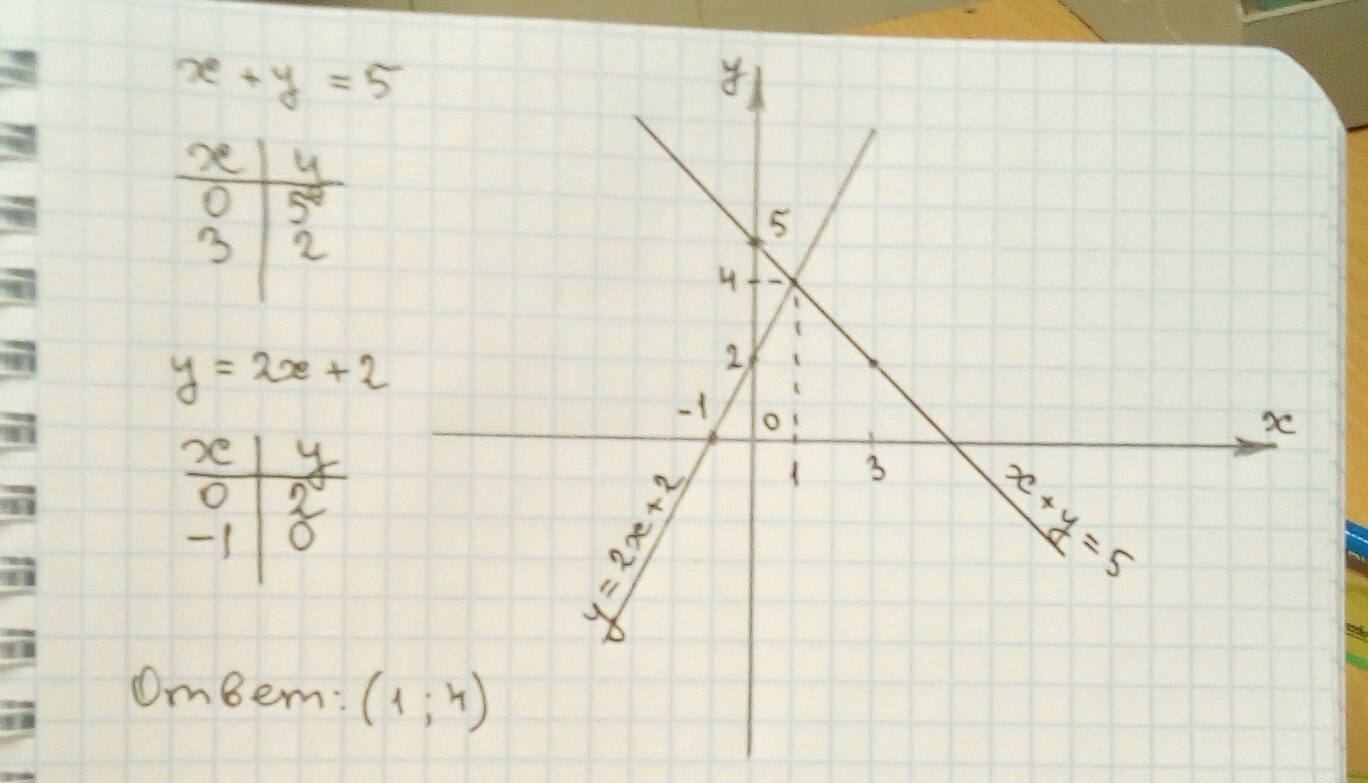 x + y = 5
x | y
0 | 5
3 | 2
y = 2x + 2
x | y
0 | 2
-1 | 0
Ответ: (1 ; 4)
y
5
4
2
-1
0
1
3
x
y = 2x + 2
x + y = 5